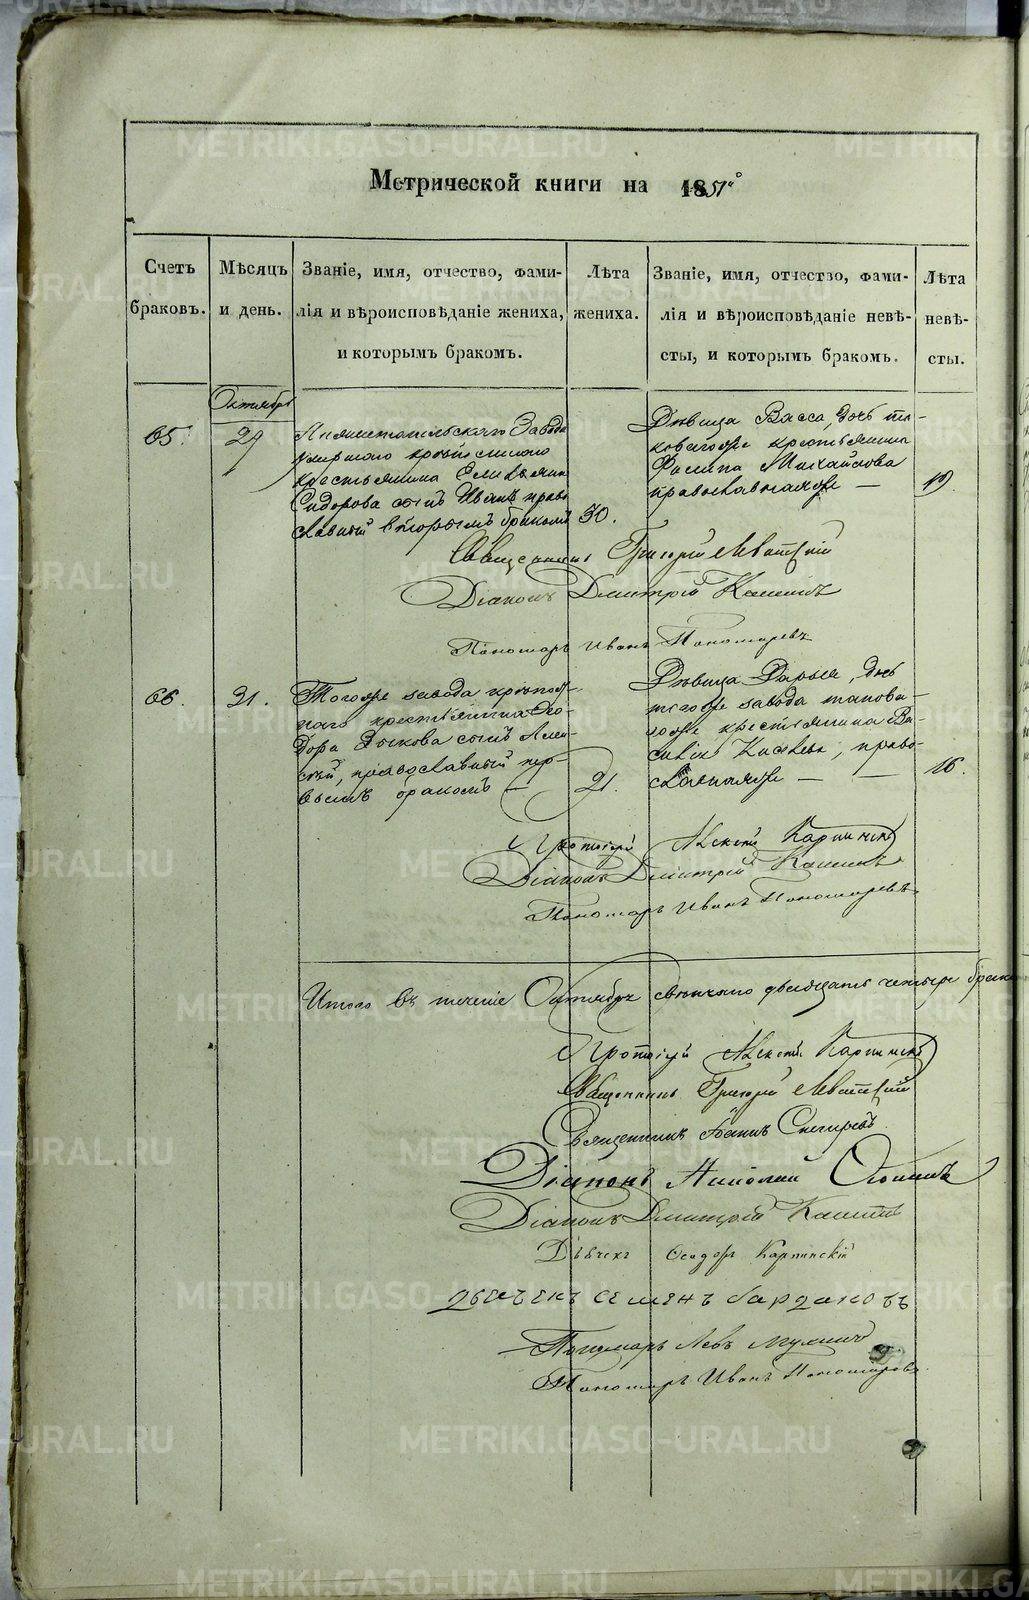 Метрической книги на 1851й
Счетъ браковъ.
Мѣсяцъ и день.
Званіе, имя, отчество, фами-
лія и вѣроисповѣданіе жениха,
и которымъ бракомъ.
Лѣта жениха.
Званіе, имя, отчество, фами-
лія и вѣроисповѣданіе невѣ-
сты, и которымъ бракомъ.
Лѣта невѣ-
сты.
Октябрь
65.
29
Завода
крѣпостнаго
крестьянина
Сидорова сынъ Иванъ право
славный вторымъ бракомъ
30.
Дѣвица Васса, дочь та-
ковагоже крестьянина
Филипа Михайлова
православнаяже —
19.
Священникъ Григорій
Діаконъ Дмитрій Кашинъ
Пономарь Иванъ Пономаревъ
66.
31.
Тогоже завода крѣпост-
наго крестьянина Ѳео-
дора сынъ Алек-
сѣй, православный пер-
вымъ бракомъ —
21.
Дѣвица Дарья, дочь
тогоже завода таково-
гоже крестьянина Ва-
право-
славнаяже — —
16.
Протоіерей Алексѣй Карпинскій
Діаконъ Дмитрій Кашинъ
Пономарь Иванъ Пономаревъ
Итого въ теченіе Октября свѣнчано двадцать четыре брака
Протоіерей Алексѣй Карпинскій
Священникъ Григорій
Священникъ Іоаннъ Снегиревъ
Діаконъ Николай
Діаконъ Дмитрій Кашинъ
Дьячекъ Карпинскій
Дьячекъ Семенъ
Пономарь Левъ
Пономарь Иванъ Пономаревъ
METRIKI.GASO-URAL.RU